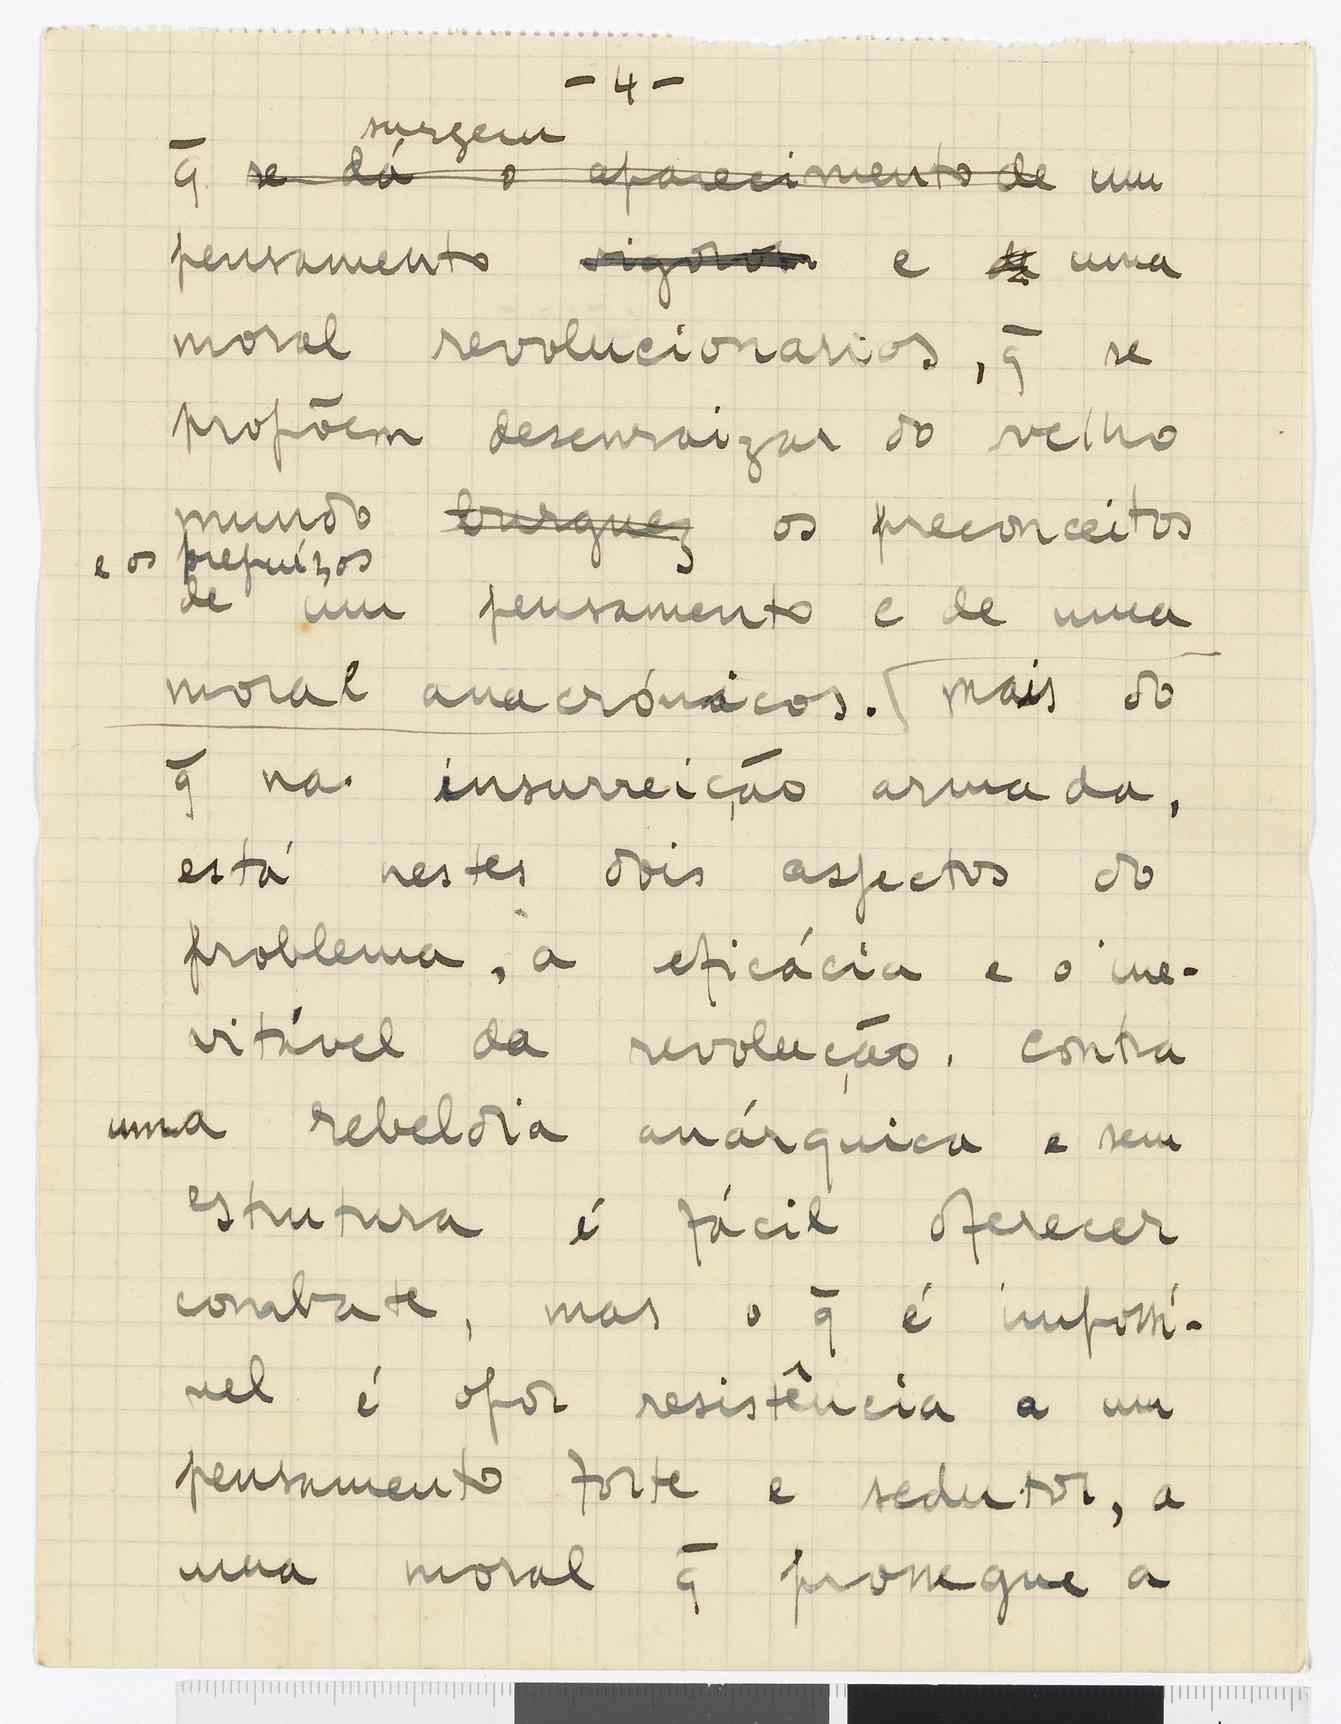 - 4 -
surgem
q̄ se dá o aparecimento de um
pensamento e uma
moral revolucionarios, q̄ se
propõem desenraizar do velho
mundo burguez os preconceitos
e os prejuízos
de um pensamento e de uma
moral anacrónicos. [mais do
q̄ na insurreição armada,
está nestes dois aspectos do
problema, a eficácia e o ine-
vitável da revolução. contra
uma rebeldia anárquica e sem
estrutura é fácil oferecer
combate, mas o q̄ é impossí-
vel é opor resistência a um
pensamento forte e sedutor, a
uma moral q̄ prossegue a